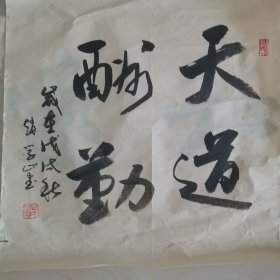 天道
酬勤
歲在戊戌秋